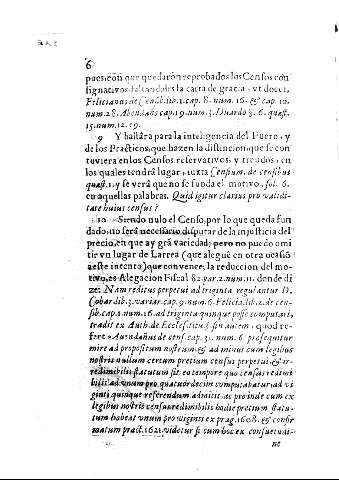 6
pues, con que quedaròn reprobados los Censos con
signativos, faltandoles la carta de gracia, vt docet,
Felicianus de Censib. lib. 1. cap. 8. num. 16. & cap. 10.
num. 28. Abendaño cap. 19. num. 3. Duardo §. 6. quæst.
15. num. 12. 19.
9 Y hallàra para la inteligencia del Fuero, y
de los Practicos, que hazen la distincion, que se con
tuviera en los Censos, reservativos, y treudos, en
los quales tendrà lugar, iuxta Censum, de censibus
quæst. 1. y se verà que no se funda el motivo, fol. 6.
en aquellas palabras. Quid igitur clarius pro validi-
tate huius census?
10. Siendo nulo el Censo, por lo que queda fun
dado, no serà necessario disputar de la injusticia del
precio, en que ay grā variedad; pero no puedo omi
tir vn lugar de Larrea (que aleguè en otra ocasiō
a este intento) que convence, la reduccion del mo-
tivo, es Alegacion Fiscal 82. par. 2. num. 11. donde di
ze: Nam reditus perpetui ad triginta regulantur D.
Cobar. lib. 3. variar. cap. 9. num. 6. Felicia. lib. 2. de cen-
sib. cap. 1. num. 16. ad triginta quinque posse computari,
tradit ex Auth. de Ecclef. tit. §. sin autem, quod re-
fert Avendañus de cens. cap. 31. num. 6 prosequitur
mire ad propositum nostrum, & ad minus cum legibus
nostris nullum certum pretium census perpetui, & ir-
redimibilis statutum sit eo tempore quo censes redimi
bilis ad unum pro quatuordecim computabatur ad vi
ginti quinque referendum admittit, ac proinde cum ex
legibus nostris census redimibilis hodie pretium statu-
tum habeat unum pro viginti ex prag. 1608. & confir
matum pract. 1621. videtur si cum hoc ex consuetudi-
ne